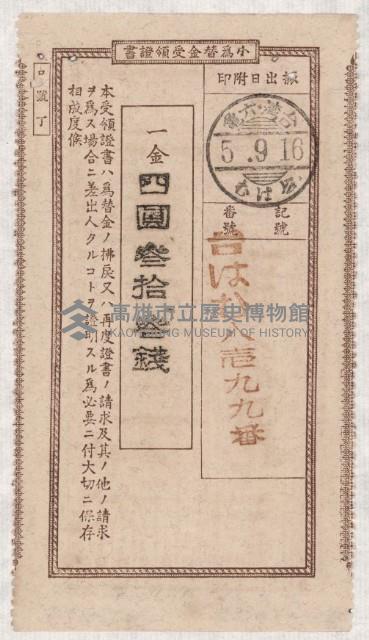 小為替金受領證書
振出日附印
5.9.16
記號
番號
台はお
壱九九番
一金
四圓叄拾叄錢
本受領證書ハ為替金ノ拂戻又ハ再度證書ノ請求及其ノ他ノ請求
ヲ為ス場合ニ差出人タルコトヲ證明スル為必要ニ付大切ニ保存
相成度候
高雄市立歷史博物館
KAOHSIUNG MUSEUM OF HISTORY